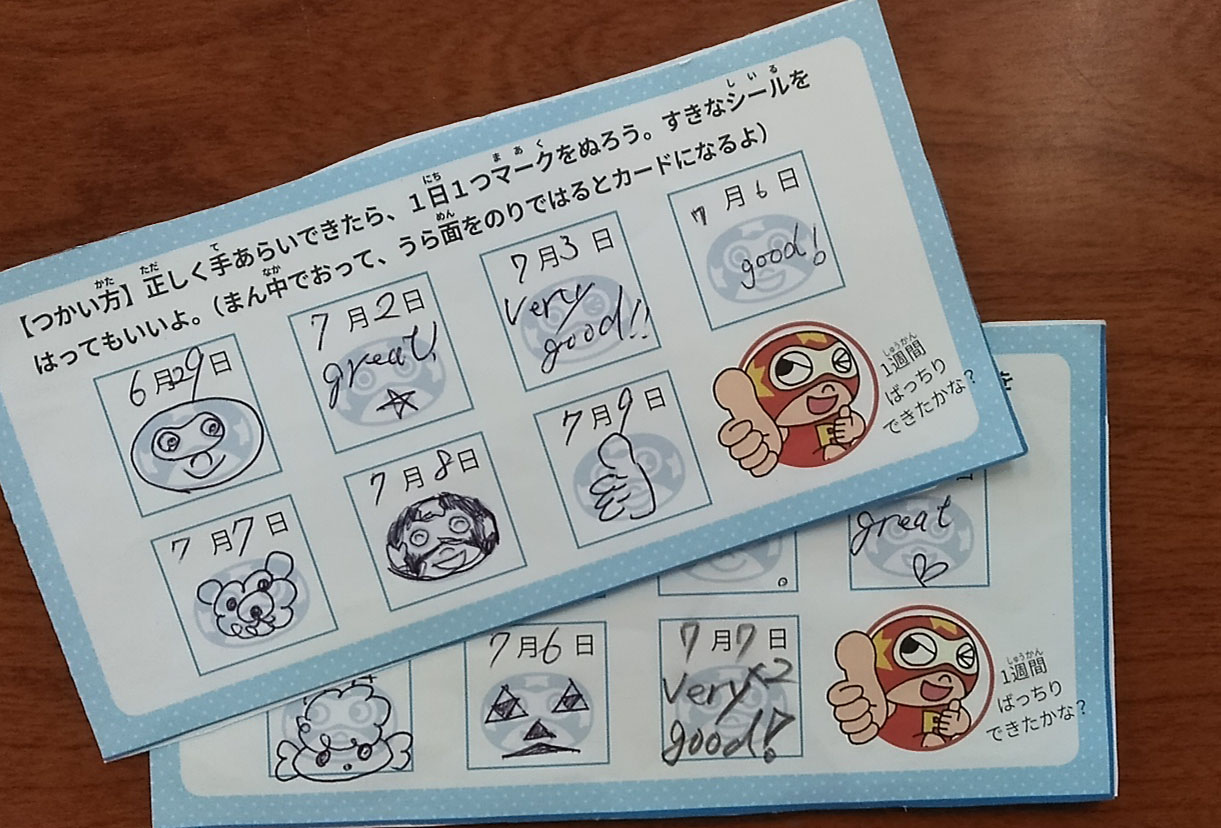 【つかい方】正しく手あらいできたら、1日1つマークをぬろう。すきなシールを
はってもいいよ。(まん中でおって、うら面をのりではるとカードになるよ)
6月29日
7月2日
great!
7月3日
very
good!!
7月6日
good!
7月7日
7月8日
7月9日
1週間
ばっちり
できたかな?
great
7月6日
7月7日
very×2
good!
1週間
ばっちり
できたかな?